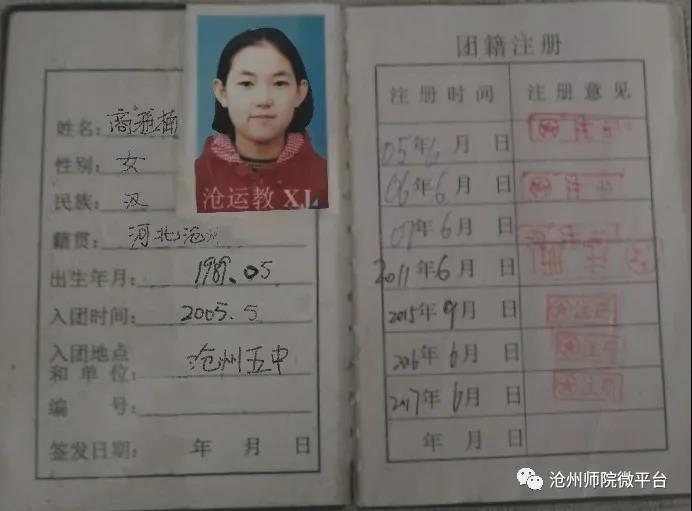 姓名：商雅楠
性别：女
民族：汉
籍贯：河北沧州
出生年月：1989.05
入团时间：2005.5
入团地点
和单位：沧州五中
编号：
签发日期： 年 月 日
沧运教 XJ
团籍注册
注册时间 注册意见
05年6月 日 注册
06年6月 日 注册
07年6月 日 注册
2011年6月 日 注册
2015年9月 日 注册
2016年6月 日 注册
2017年6月 日 注册
年 月 日
沧州师院微平台